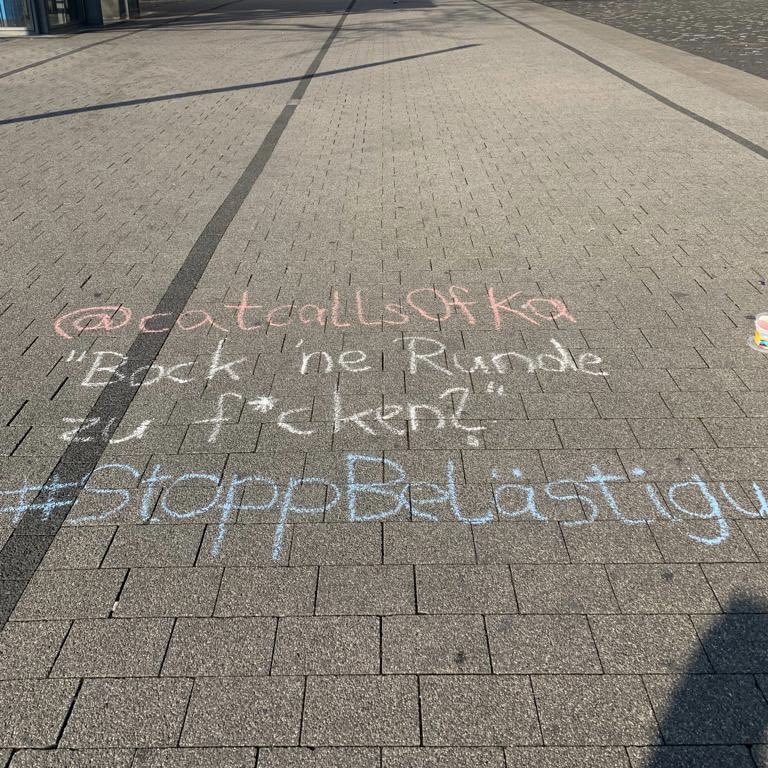 @catcallsOfKa
"Bock 'ne Runde
zu f*cken?"
#StoppBelästigu